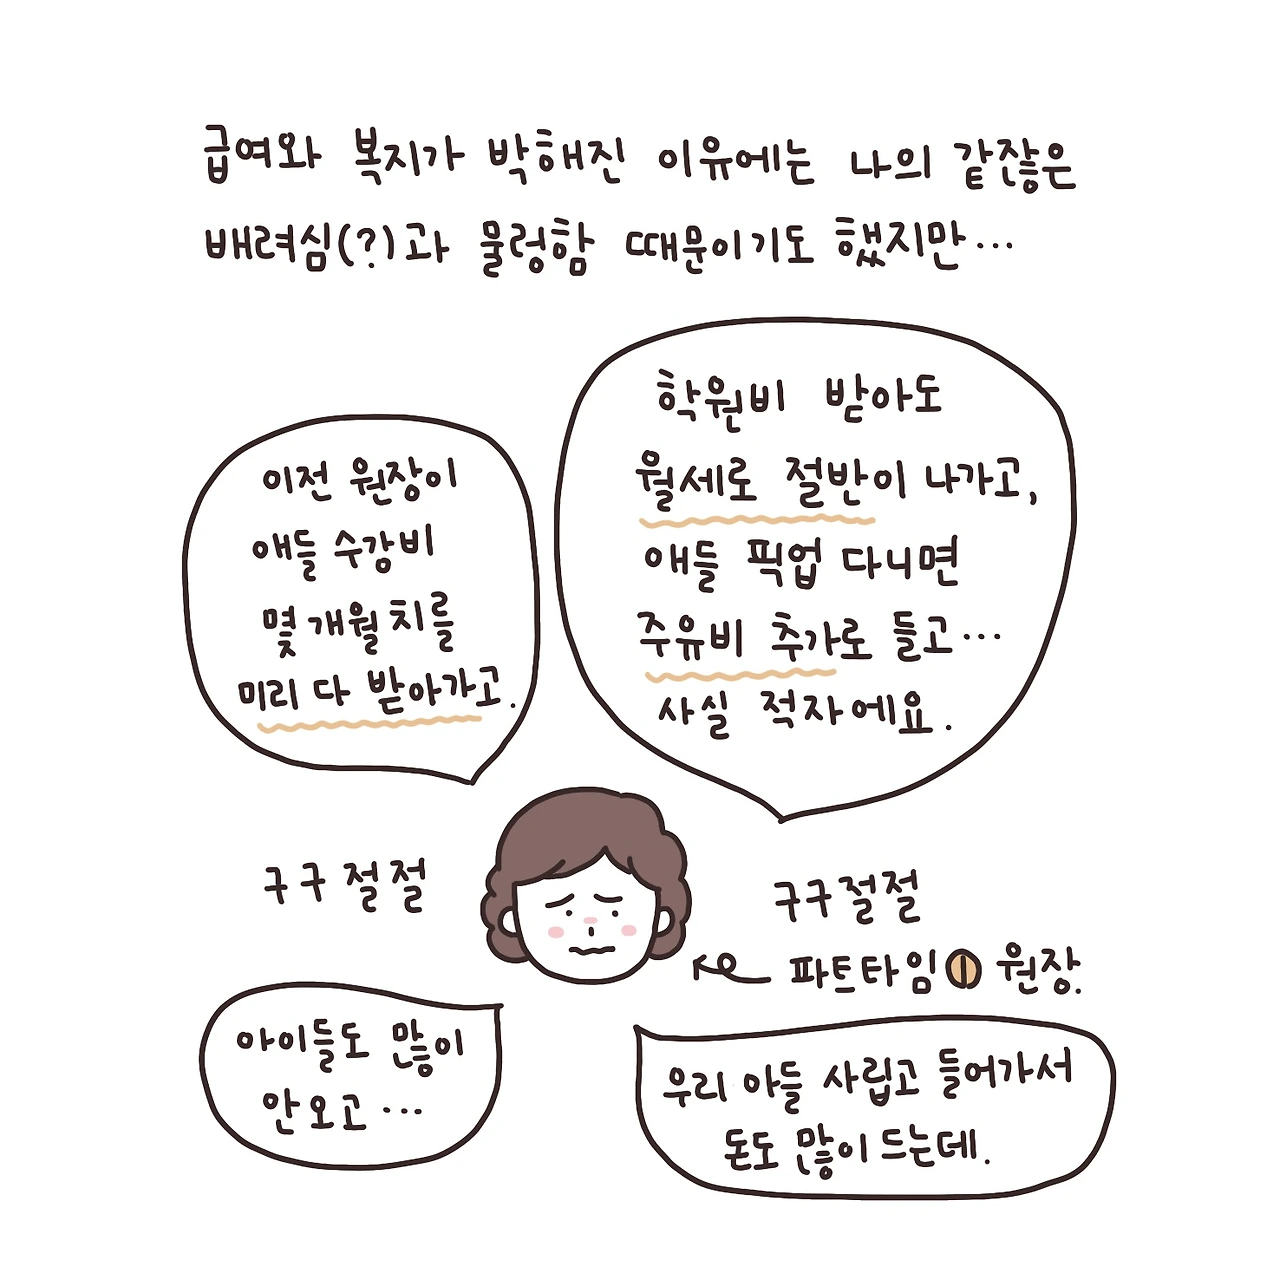 급여와 복지가 박해진 이유에는 나의 같잖은
배려심(?)과 물렁함 때문이기도 했지만...
이전 원장이
애들 수강비
몇 개월 치를
미리 다 받아가고.
학원비 받아도
월세로 절반이 나가고,
애들 픽업 다니면
주유비 추가로 들고...
사실 적자에요.
구구절절
구구절절
파트타임 원장.
아이들도 많이
안오고...
우리 아들 사립고 들어가서
돈도 많이 드는데.